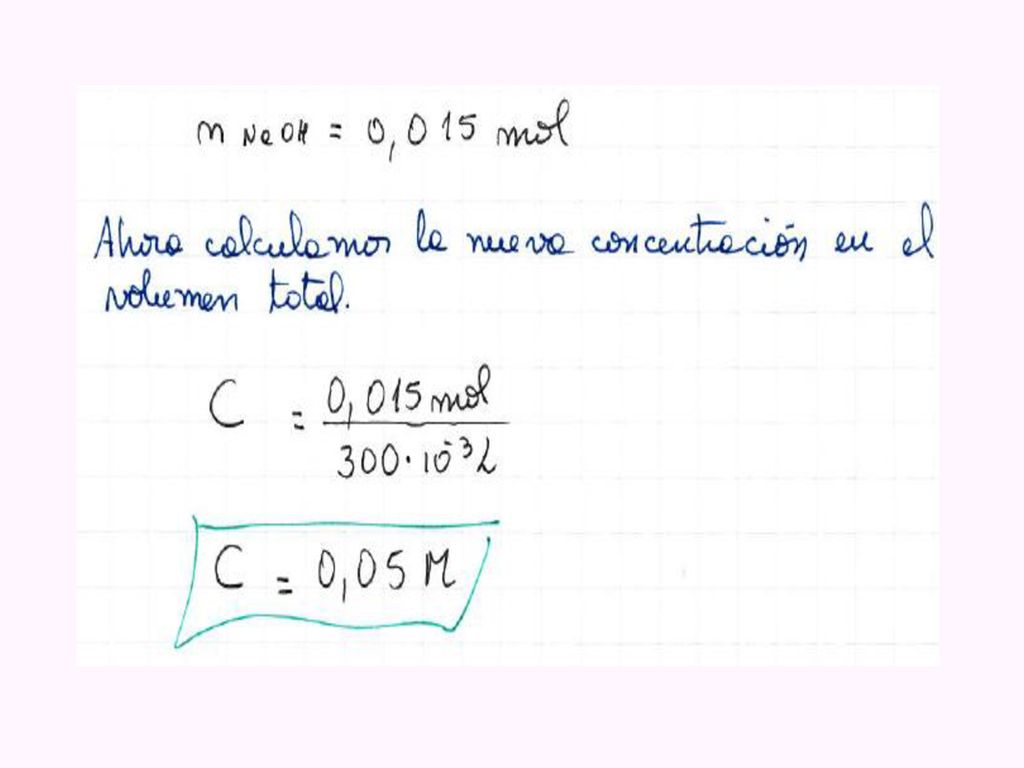 n NaOH = 0,015 mol
Ahora calculamos la nueva concentración en el
volumen total.
C = 0,015 mol / 300·10⁻³ L
C = 0,05 M